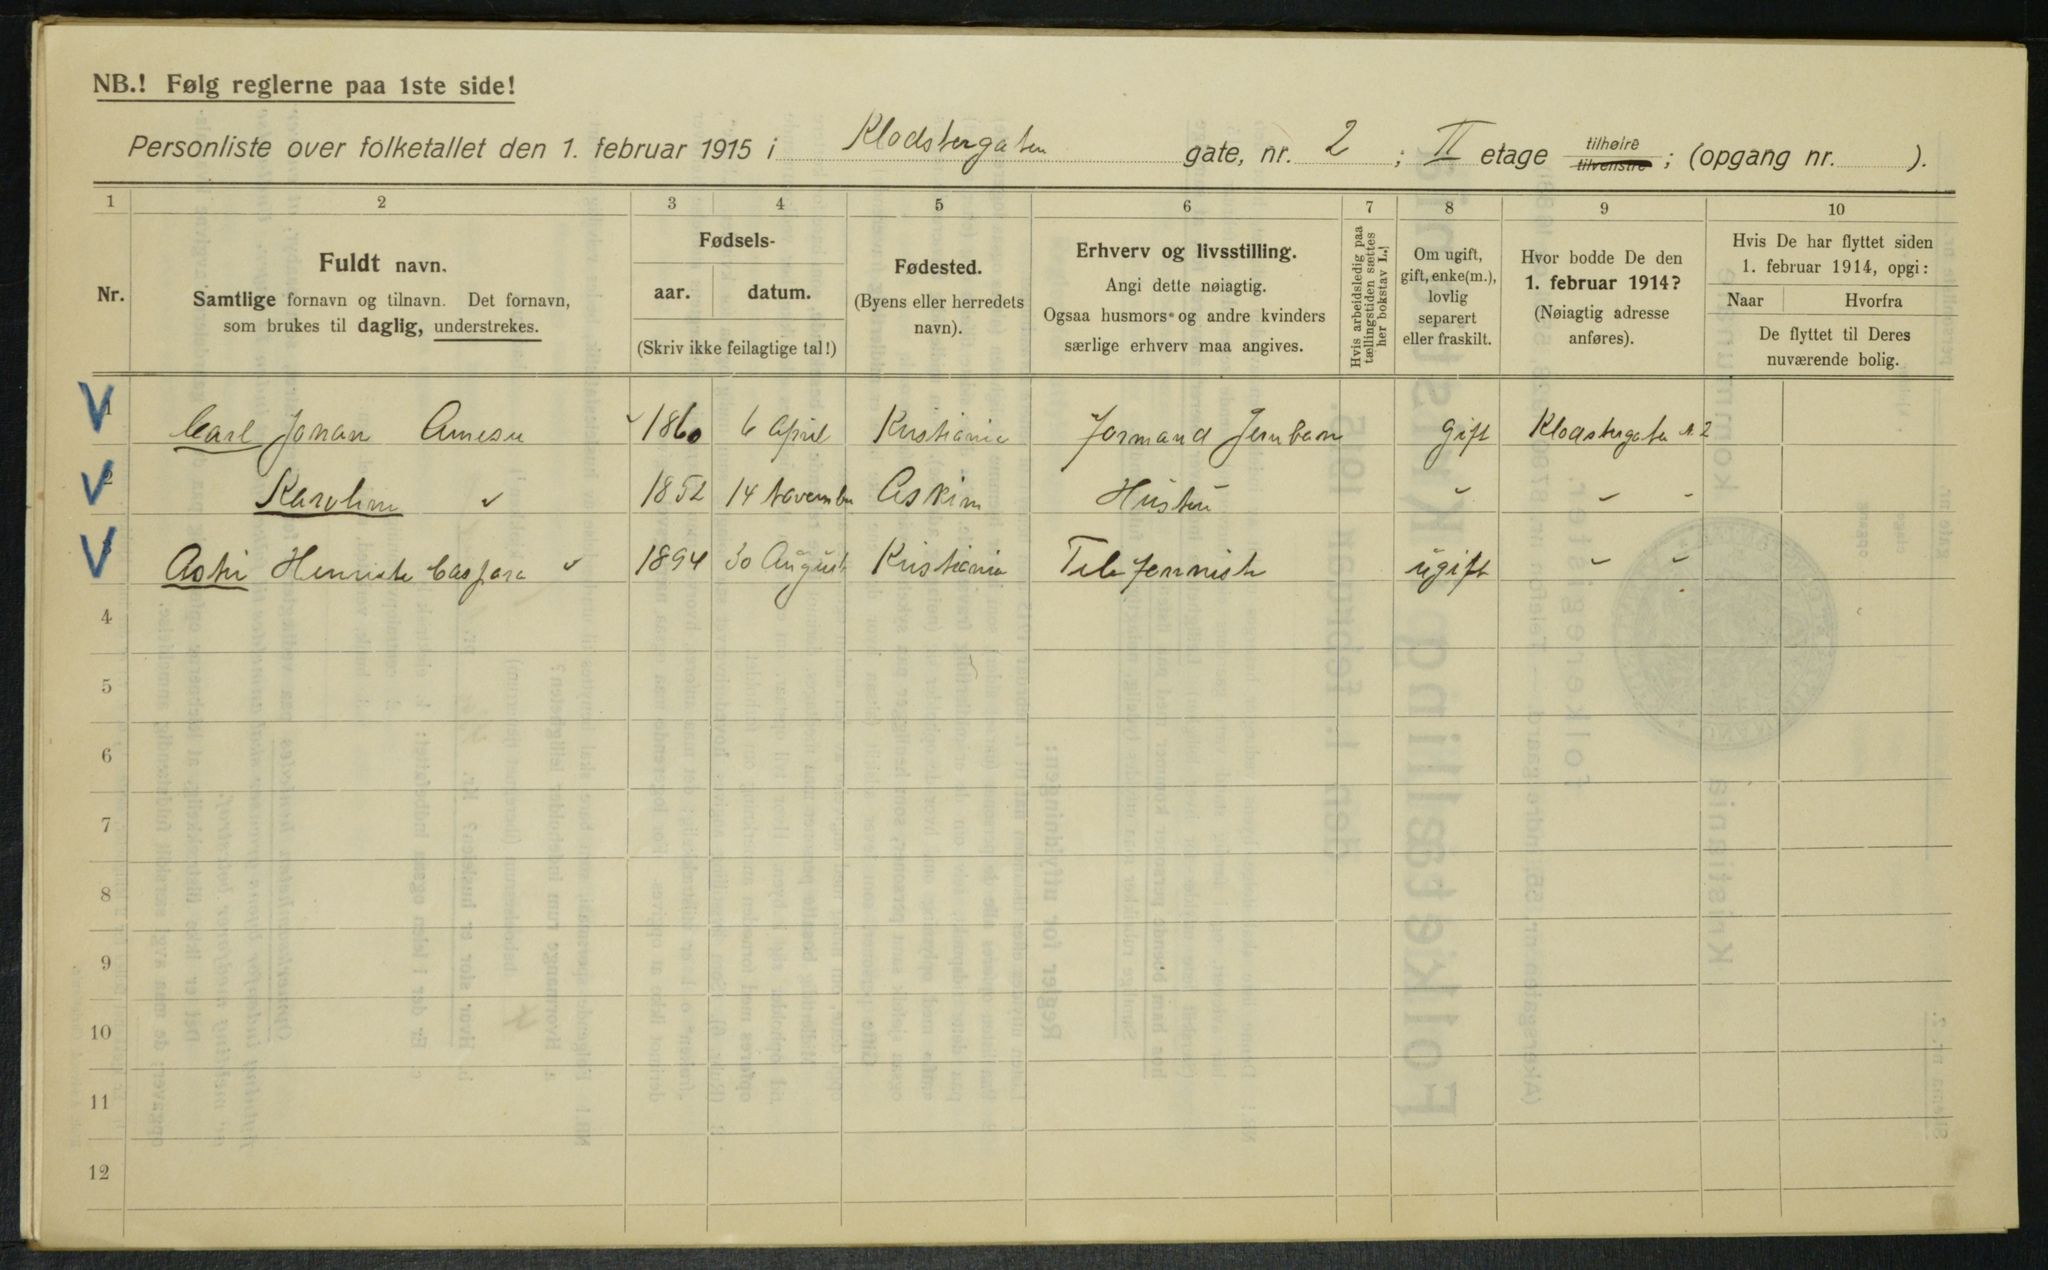 NB.! Følg reglerne paa 1ste side!
Personliste over folketallet den 1. februar 1915 i Klodstergaten gate, nr. 2 ; II etage tilhøire tilvenstre ; (opgang nr. ).
1 2 3 4 5 6 7 8 9 10
Nr.
Fuldt navn.
Samtlige fornavn og tilnavn. Det fornavn,
som brukes til daglig, understrekes.
Fødsels-
aar. datum.
(Skriv ikke feilagtige tal!)
Fødested.
(Byens eller herredets
navn).
Erhverv og livsstilling.
Angi dette nøiagtig.
Ogsaa husmors- og andre kvinders
særlige erhverv maa angives.
Hvis arbeidsledig paa
tællingstiden sættes
her bokstav L.!
Om ugift,
gift, enke(m.),
lovlig
separert
eller fraskilt.
Hvor bodde De den
1. februar 1914?
(Nøiagtig adresse
anføres).
Hvis De har flyttet siden
1. februar 1914, opgi:
Naar Hvorfra
De flyttet til Deres
nuværende bolig.
1 Carl Johan Arnesen 1860 6 April Kristiania Formand Jernbane gift Klodstergaten N. 2
2 Karoline 1852 14 November Askim Hustru
3 Henriette Caspara 1894 30 August Kristiania Telefonnist ugift
4
5
6
7
8
9
10
11
12